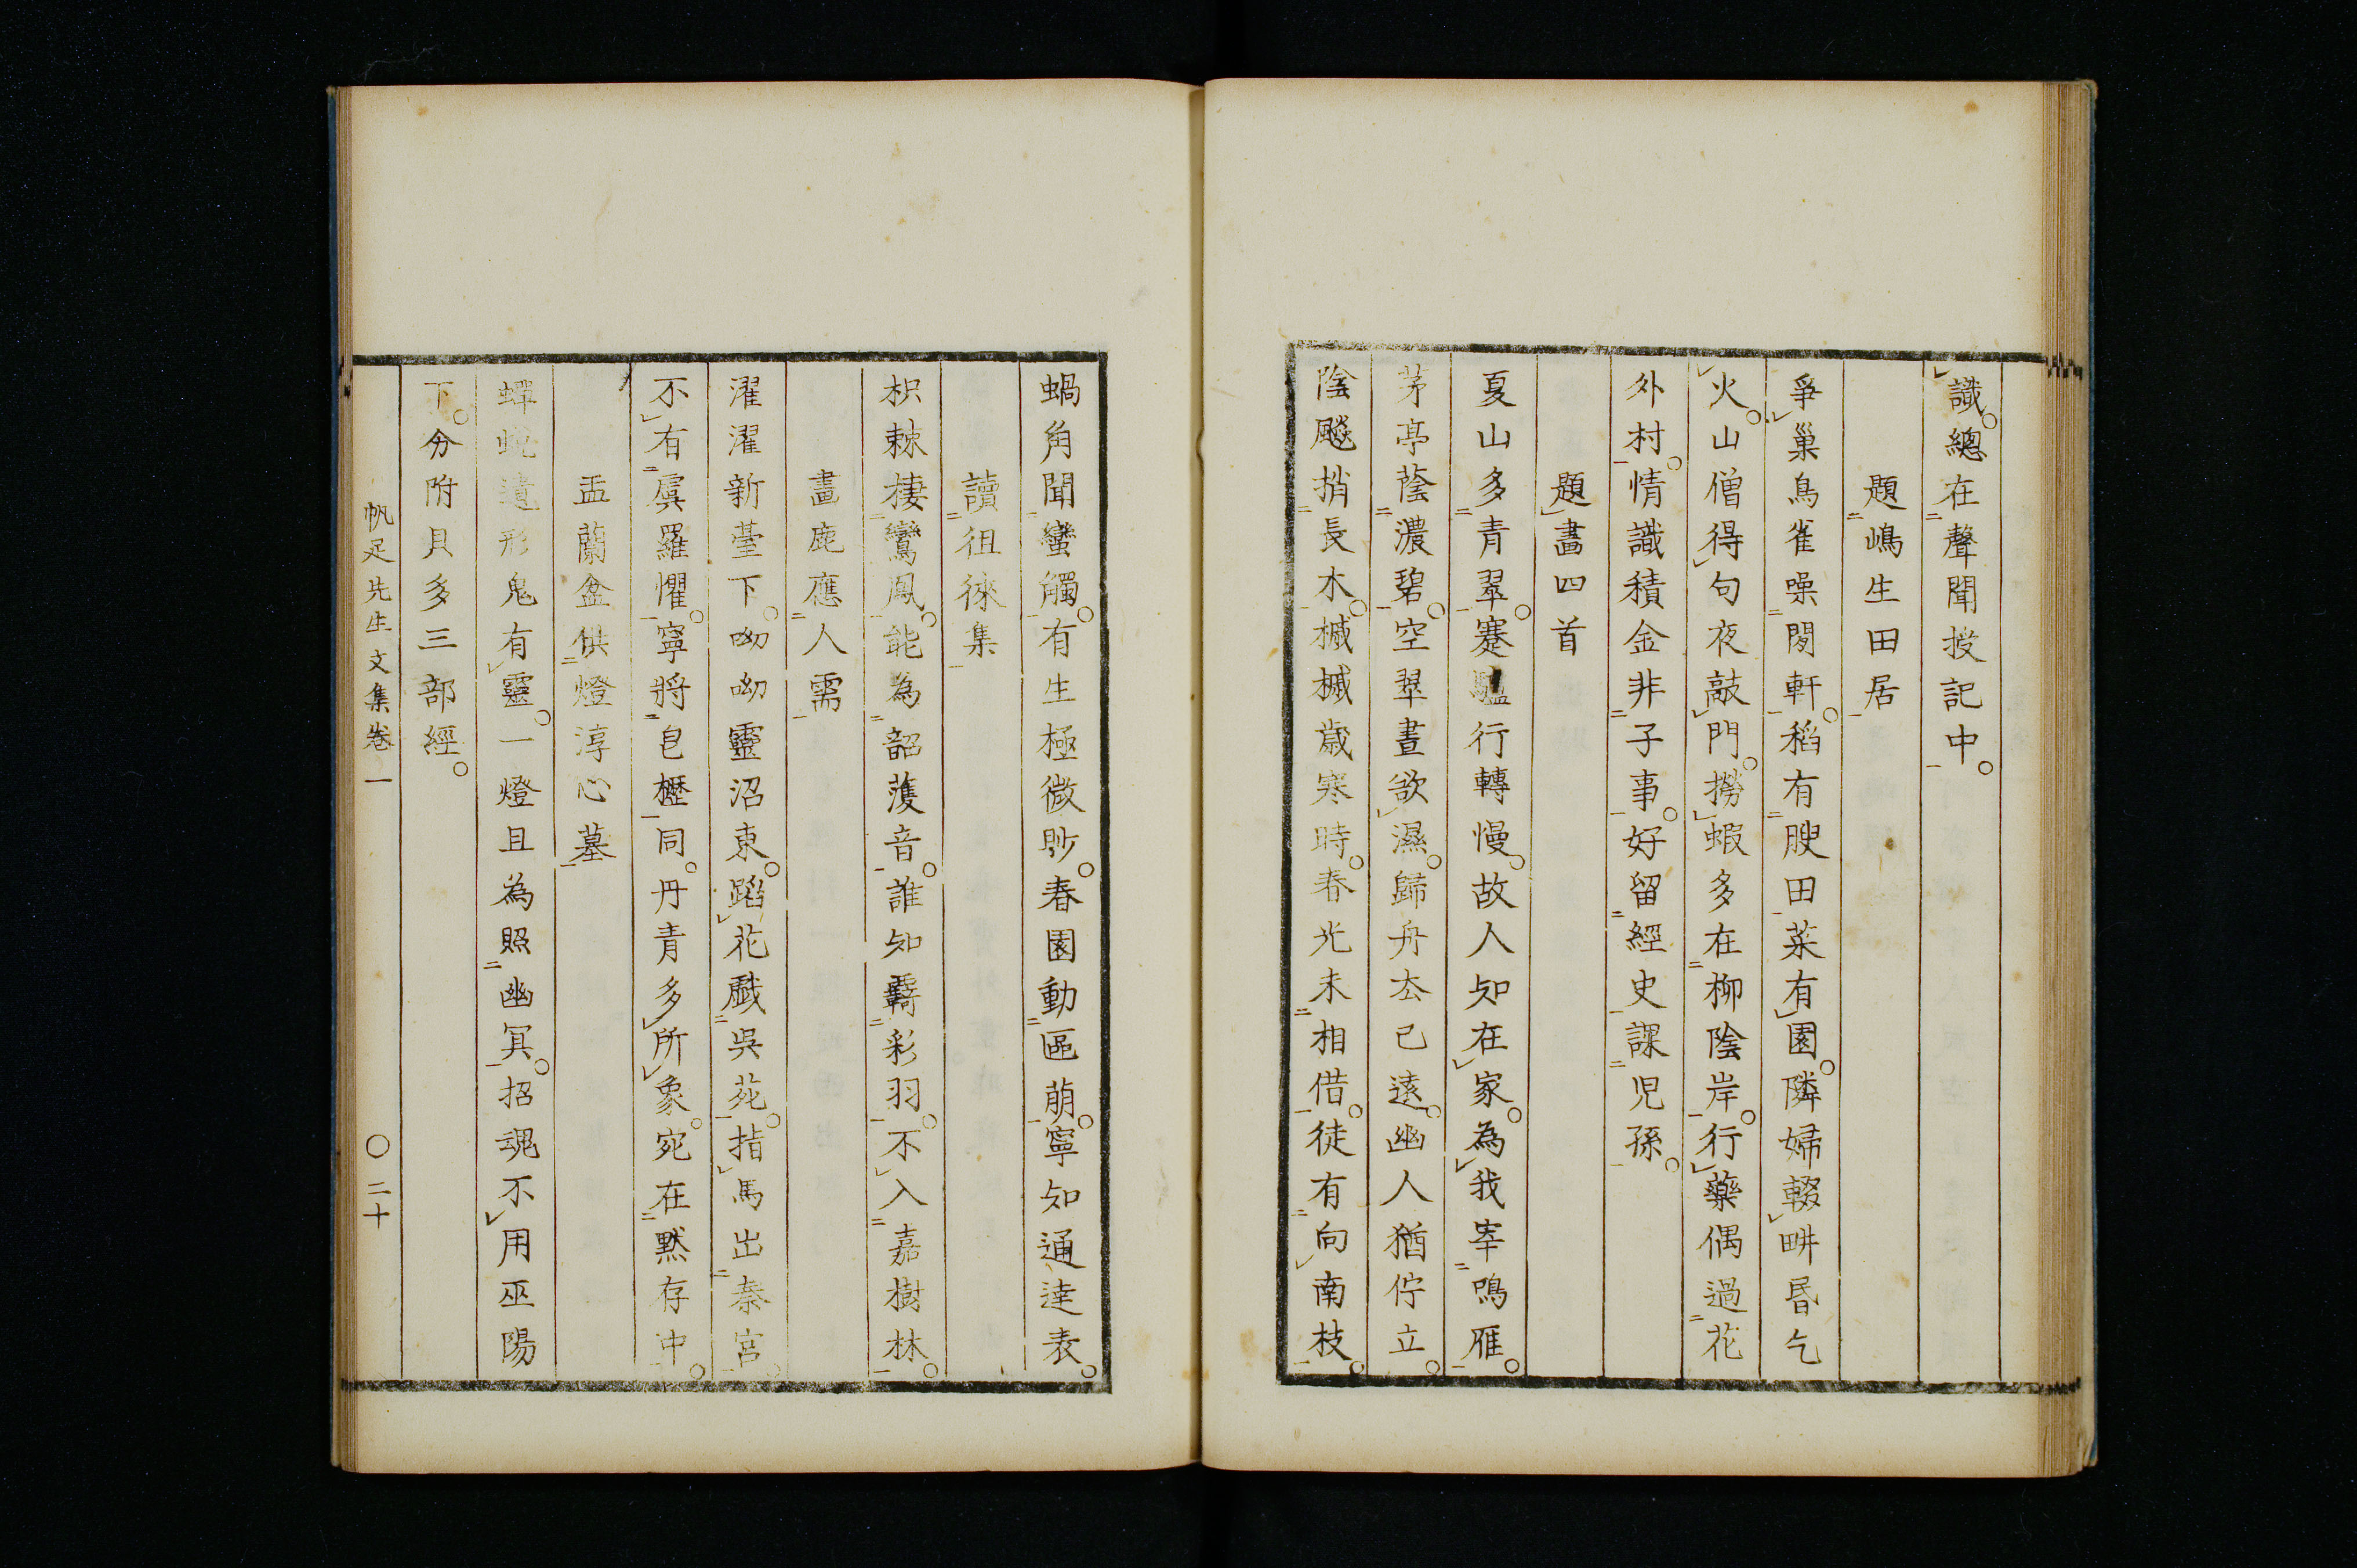 識。總在聲聞授記中。
題嶋生田居
爭巢鳥雀噪閑軒。稻有膄田菜有園。隣婦輟畊昬乞
火。山僧得句夜敲門。撈蝦多在柳陰岸。行藥偶過花
外村。情識積金非子事。好留經史課児孫。
題畫四首
夏山多青翠。蹇驢行轉慢。故人知在家。為我宰鳴雁。
茅亭蔭濃碧。空翠晝欲濕。歸舟去已遠。幽人猶佇立。
陰飇捎長木。槭槭歲寒時。春光未相借。徒有向南枝。
蝸角聞蠻觸。有生極微眇。春園動區萠。寧知通達表。
讀徂徠集
枳棘棲鸞鳳。能為韶頀音。誰知鬻彩羽。不入嘉樹林。
畫鹿應人需
濯濯新臺下。呦呦靈沼東。蹈花戲吳苑。指馬出秦宮。
不有虞羅懼。寧將皂櫪同。丹青多所象。宛在默存中。
盂蘭盆供燈淳心墓
蟬蛻遺形鬼有靈。一燈且為照幽冥。招魂不用巫陽
下。分附貝多三部經。
帆足先生文集卷一
〇二十